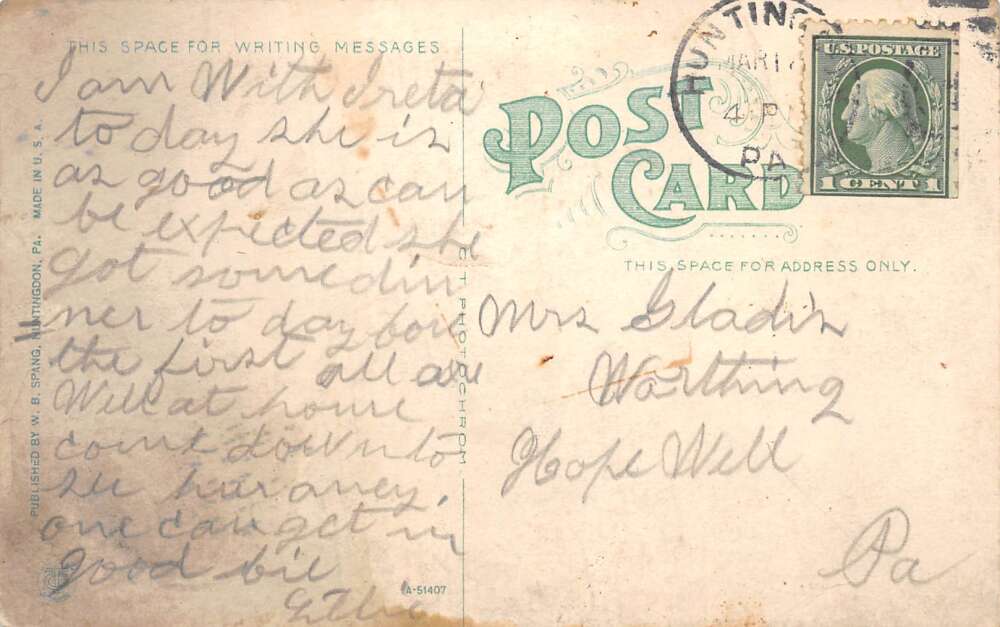 THIS SPACE FOR WRITING MESSAGES
I am With Ireta
to day she is
as good as can
be expected she
got some din
ner to day for
the first all are
Well at home
come down to
see her aney
one can get in
good bie
PUBLISHED BY W. B. SPANG, HUNTINGDON, PA. MADE IN U. S. A.
C T PHOTOCHROM
A-51407
POST CARD
HUNTING
MAR 1
4 P
PA
U.S. POSTAGE
1 CENT 1
THIS SPACE FOR ADDRESS ONLY.
Mrs Gladis
Worthing
Hope Well
Pa